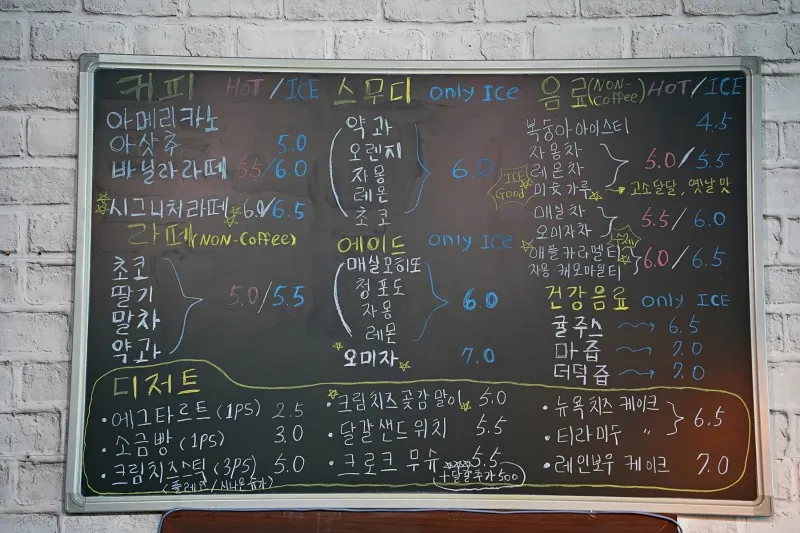 커피 HOT / ICE
아메리카노
아샷추 5.0
바닐라라떼 5.5/6.0
시그니처라떼 6.0/6.5
라떼 (NON-Coffee)
초코
딸기
말차
약과
5.0/5.5
스무디 only ICE
약과
오렌지
자몽
레몬
초코
6.0
에이드 only ICE
매실모히또
청포도
자몽
레몬
6.0
오미자 7.0
음료 (NON-Coffee) HOT / ICE
복숭아아이스티 4.5
자몽차
레몬차
미숫가루
5.0/5.5
ICE Good
고소달달, 옛날 맛
매실차
오미자차
5.5/6.0
애플카라멜티
자몽 캐모마일티
6.0/6.5
건강음료 only ICE
귤주스 6.5
마즙 7.0
더덕즙 7.0
디저트
• 에그타르트 (1PS) 2.5
• 소금빵 (1PS) 3.0
• 크림치즈스틱 (3PS) 5.0
• 크림치즈곶감말이 5.0
• 달걀샌드위치 5.5
• 크로크무슈 5.5
+달걀추가 500
• 뉴욕치즈 케이크
• 티라미두 〃
6.5
• 레인보우 케이크 7.0